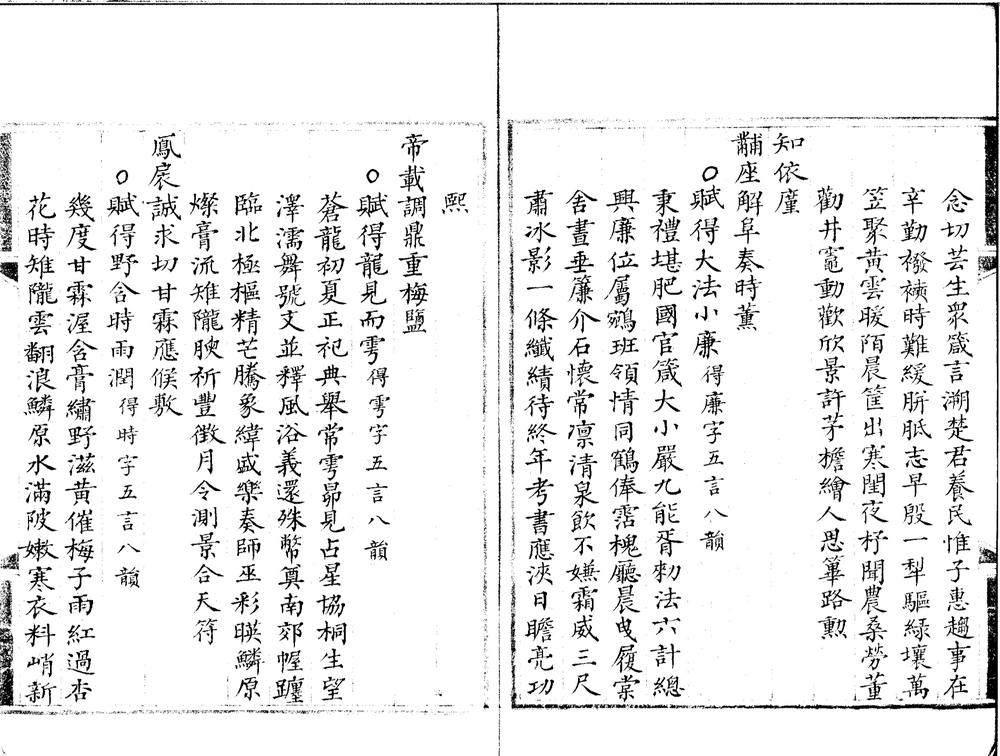 念切芸生眾箴言溯楚君養民惟子惠趨事在
辛勤襏襫時難緩胼胝志早殷一犁驅綠壤萬
笠聚黃雲暖陌晨筐出寒閨夜杼聞農桑勞董
勸井竈動歡欣景許茅檐繪人思篳路勲
知依廑
黼座解阜奏時薰
○賦得大法小廉得廉字五言八韻
秉禮堪肥國官箴大小嚴九能胥勑法六計總
興廉位屬鵷班領情同鶴俸霑槐廳晨曳履棠
舍晝垂簾介石懷常凛清泉飲不嫌霜威三尺
肅冰影一條纖績待終年考書應浹日瞻亮功
熙
帝載調鼎重梅鹽
○賦得龍見而雩得雩字五言八韻
蒼龍初夏正祀典舉常雩昴見占星協桐生望
澤濡舞號文並釋風浴義還殊幣奠南郊幄躔
臨北極樞精芒騰象緯盛樂奏師巫彩暎鱗原
燦膏流雉隴腴祈豐徵月令測景合天符
鳳扆誠求切甘霖應候敷
○賦得野含時雨潤得時字五言八韻
幾度甘霖渥含膏繡野滋黃催梅子雨紅過杏
花時雉隴雲翻浪鱗原水滿陂嫩寒衣料峭新